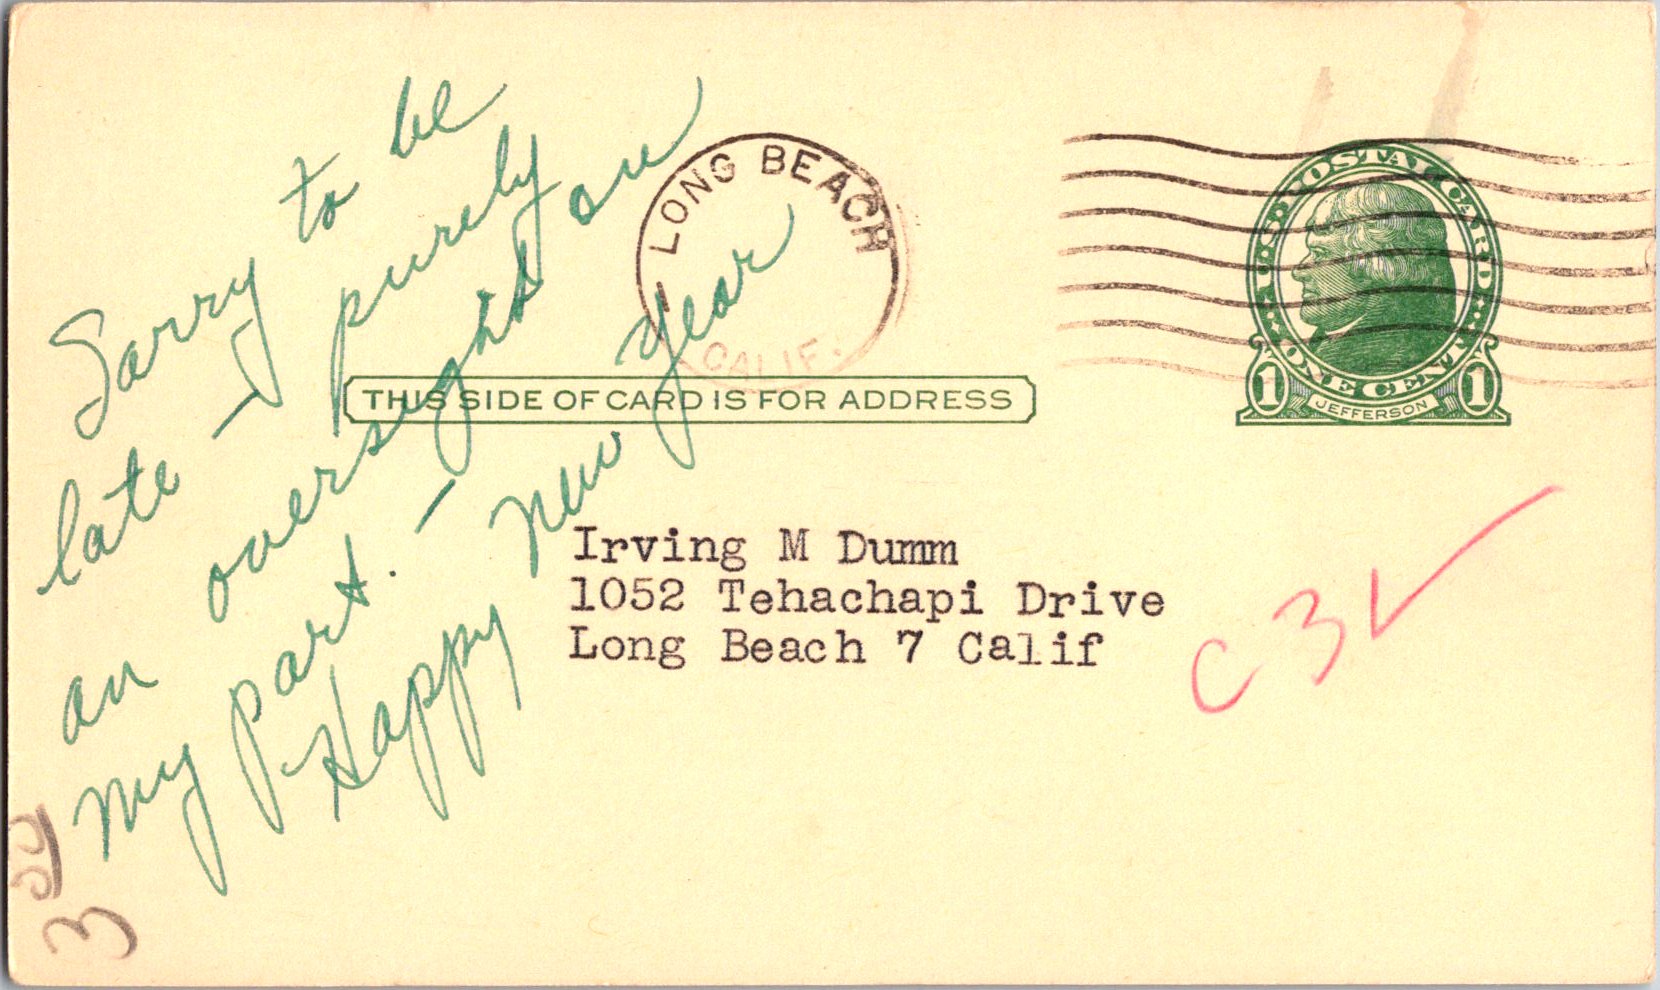 Sorry to be
late - purely
an oversight on
my part. -
Happy New Year
LONG BEACH
CALIF.
U.S. POSTAL CARD
ONE CENT
1 JEFFERSON 1
THIS SIDE OF CARD IS FOR ADDRESS
Irving M Dumm
1052 Tehachapi Drive
Long Beach 7 Calif
C 3 ✓
3 50